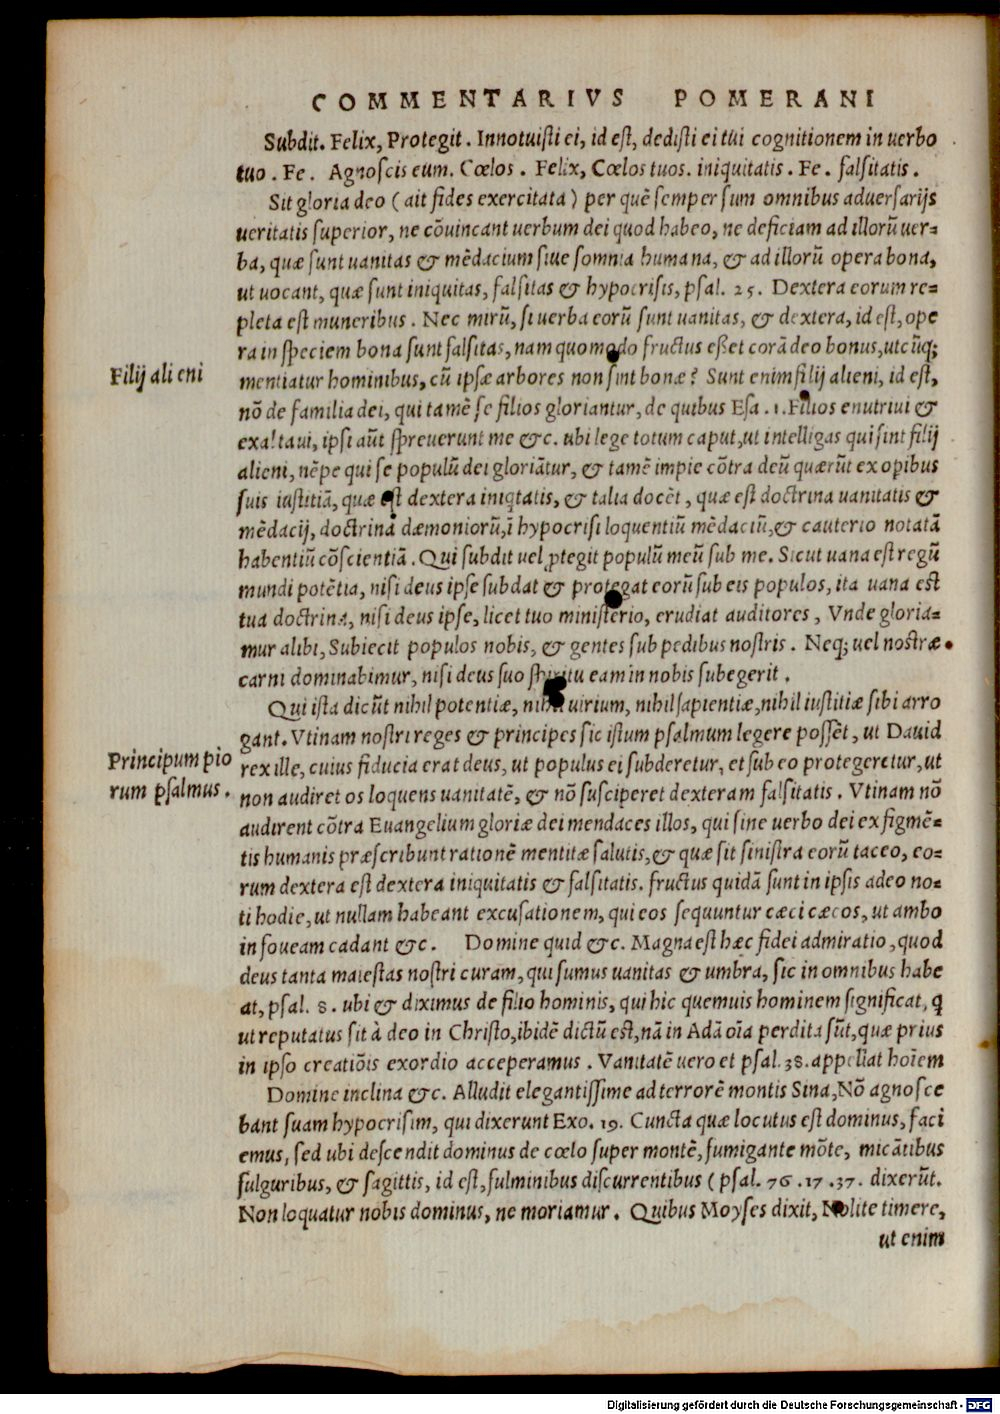 COMMENTARIVS POMERANI
Subdit. Felix, Protegit. Innotuisti ei, id est, dedisti ei tui cognitionem in uerbo
tuo. Fe. Agnoscis eum. Cœlos. Felix, Cœlos tuos. iniquitatis. Fe. falsitatis.
Sit gloria deo (ait fides exercitata) per quē semper sum omnibus aduersarijs
ueritatis superior, ne cōuincant uerbum dei quod habeo, ne deficiam ad illorū uer=
ba, quæ sunt uanitas & mēdacium siue somnia humana, & ad illorū opera bona,
ut uocant, quæ sunt iniquitas, falsitas & hypocrisis, psal. 25. Dextera eorum re=
pleta est muneribus. Nec mirū, si uerba eorū sunt uanitas, & dextera, id est, ope
ra in speciem bona sunt falsitas, nam quomodo fructus eßet corā deo bonus, utcūq;
Filij ali eni
mentiatur hominibus, cū ipsæ arbores non sint bonæ? Sunt enim filij alieni, id est,
nō de familia dei, qui tamē se filios gloriantur, de quibus Esa. 1. Filios enutriui &
exaltaui, ipsi aūt spreuerunt me &c. ubi lege totum caput, ut intelligas qui sint filij
alieni, nēpe qui se populū dei gloriātur, & tamē impie cōtra deū quærūt ex opibus
suis iustitiā, quæ est dextera iniqtatis, & talia docēt, quæ est doctrina uanitatis &
mēdacij, doctrina dæmoniorū, ī hypocrisi loquentiū mēdaciū, & cauterio notatā
habentiū cōscientiā. Qui subdit uel ptegit populū meū sub me. Sicut uana est regū
mundi potētia, nisi deus ipse subdat & protegat eorū sub eis populos, ita uana est
tua doctrina, nisi deus ipse, licet tuo ministerio, erudiat auditores, Vnde gloria=
mur alibi, Subiecit populos nobis, & gentes sub pedibus nostris. Neq; uel nostræ
carni dominabimur, nisi deus suo spiritu eam in nobis subegerit.
Qui ista dicūt nihil potentiæ, nihil uirium, nihil sapientiæ, nihil iustitiæ sibi arro
gant. Vtinam nostri reges & principes sic istum psalmum legere possēt, ut Dauid
Principum pio
rum psalmus.
rex ille, cuius fiducia erat deus, ut populus ei subderetur, et sub eo protegeretur, ut
non audiret os loquens uanitatē, & nō susciperet dexteram falsitatis. Vtinam nō
audirent cōtra Euangelium gloriæ dei mendaces illos, qui sine uerbo dei ex figmē=
tis humanis præscribunt rationē mentitæ salutis, & quæ sit sinistra eorū taceo, eo=
rum dextera est dextera iniquitatis & falsitatis. fructus quidā sunt in ipsis adeo no=
ti hodie, ut nullam habeant excusationem, qui eos sequuntur cæci cæcos, ut ambo
in foueam cadant &c. Domine quid &c. Magna est hæc fidei admiratio, quod
deus tanta maiestas nostri curam, qui sumus uanitas & umbra, sic in omnibus habe
at, psal. 8. ubi & diximus de filio hominis, qui hic quemuis hominem significat, q
ut reputatus sit à deo in Christo, ibidē dictū est, nā in Adā oīa perdita sūt, quæ prius
in ipso creatiōis exordio acceperamus. Vanitatē uero et psal. 38. appellat hoīem
Domine inclina &c. Alludit elegantissime ad terrorē montis Sina, Nō agnosce
bant suam hypocrisim, qui dixerunt Exo. 19. Cuncta quæ locutus est dominus, faci
emus, sed ubi descendit dominus de cœlo super montē, fumigante mōte, micātibus
fulguribus, & sagittis, id est, fulminibus discurrentibus (psal. 76. 17. 37. dixerūt.
Non loquatur nobis dominus, ne moriamur. Quibus Moyses dixit, Nolite timere,
ut enim
Digitalisierung gefördert durch die Deutsche Forschungsgemeinschaft - DFG